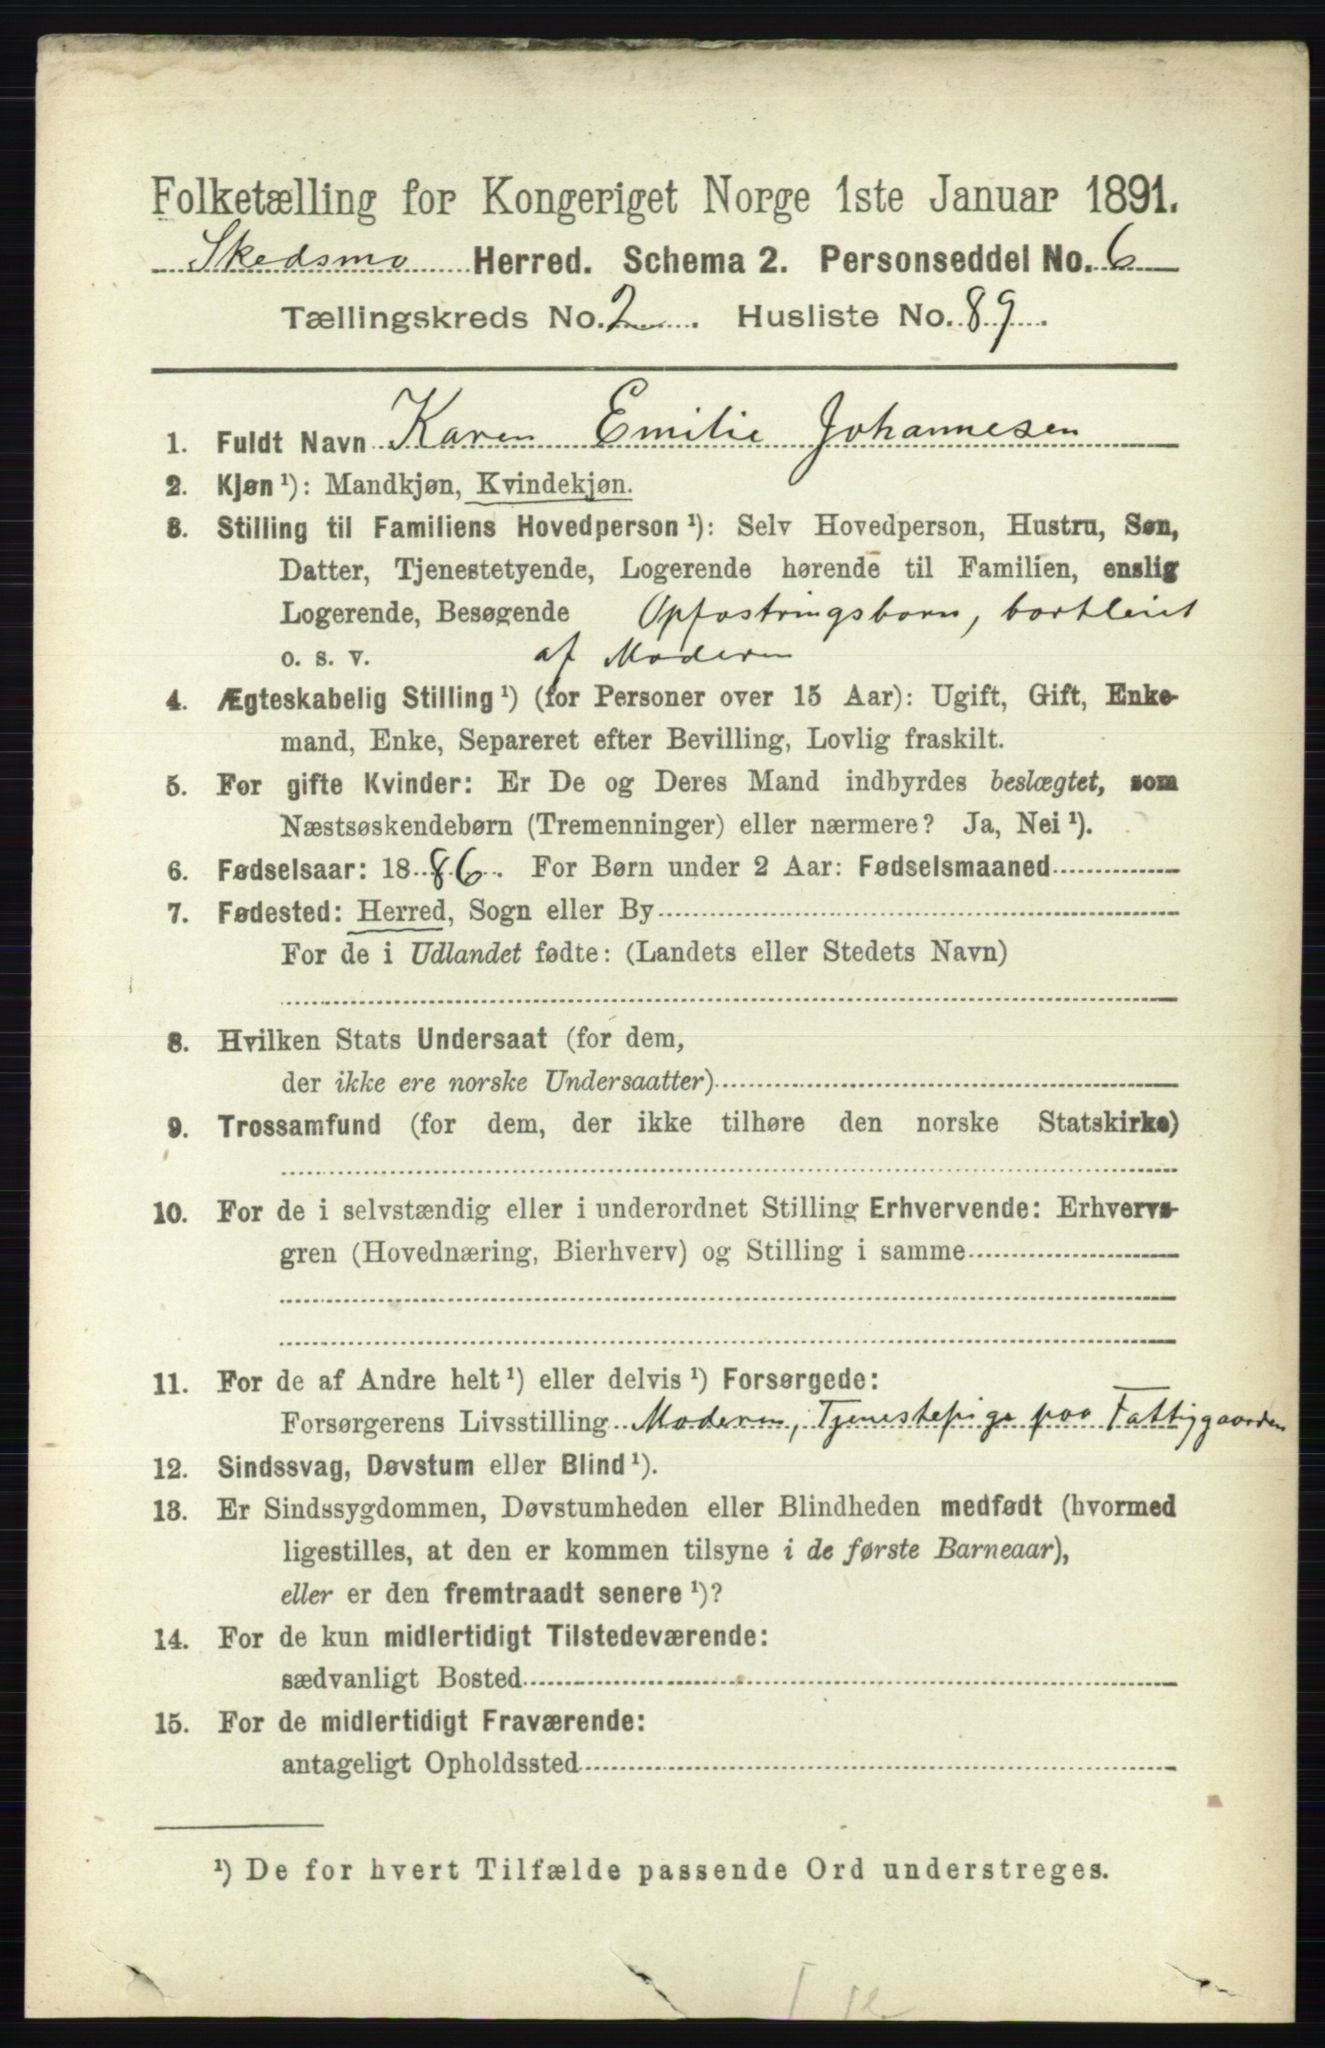 Folketælling for Kongeriget Norge 1ste Januar 1891.
Skedsmo Herred. Schema 2. Personseddel No. 6
Tællingskreds No. 2. Husliste No. 89.
1. Fuldt Navn Karen Emilie Johannesen
2. Kjøn ¹): Mandkjøn, Kvindekjøn.
3. Stilling til Familiens Hovedperson ¹): Selv Hovedperson, Hustru, Søn,
Datter, Tjenestetyende, Logerende hørende til Familien, enslig
Logerende, Besøgende Opfostringsbarn, bortleiet
o. s. v. af Moderen
4. Ægteskabelig Stilling ¹) (for Personer over 15 Aar): Ugift, Gift, Enke-
mand, Enke, Separeret efter Bevilling, Lovlig fraskilt.
5. For gifte Kvinder: Er De og Deres Mand indbyrdes beslægtet, som
Næstsøskendebørn (Tremenninger) eller nærmere? Ja, Nei ¹).
6. Fødselsaar: 1886. For Børn under 2 Aar: Fødselsmaaned
7. Fødested: Herred, Sogn eller By
For de i Udlandet fødte: (Landets eller Stedets Navn)
8. Hvilken Stats Undersaat (for dem,
der ikke ere norske Undersaatter)
9. Trossamfund (for dem, der ikke tilhøre den norske Statskirke)
10. For de i selvstændig eller i underordnet Stilling Erhvervende: Erhvervs-
gren (Hovednæring, Bierhverv) og Stilling i samme
11. For de af Andre helt ¹) eller delvis ¹) Forsørgede:
Forsørgerens Livsstilling Moderen, Tjenestepige paa Fattiggaarden
12. Sindssvag, Døvstum eller Blind ¹).
13. Er Sindssygdommen, Døvstumheden eller Blindheden medfødt (hvormed
ligestilles, at den er kommen tilsyne i de første Barneaar),
eller er den fremtraadt senere ¹)?
14. For de kun midlertidigt Tilstedeværende:
sædvanligt Bosted
15. For de midlertidigt Fraværende:
antageligt Opholdssted
¹) De for hvert Tilfælde passende Ord understreges.